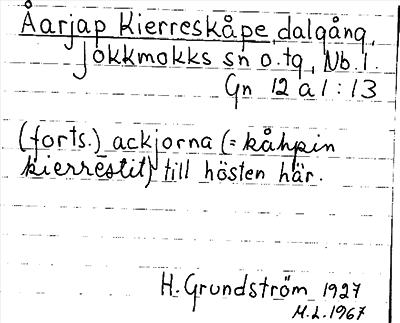 Åarjap Kierreskåpe, dalgång,
Jokkmokks sn o. tg, Nb. l.
Gn 12 a 1:13
(forts.) ackjorna (= kåhpin
kierrestit) till hösten här.
H. Grundström 1927
M.L. 1967